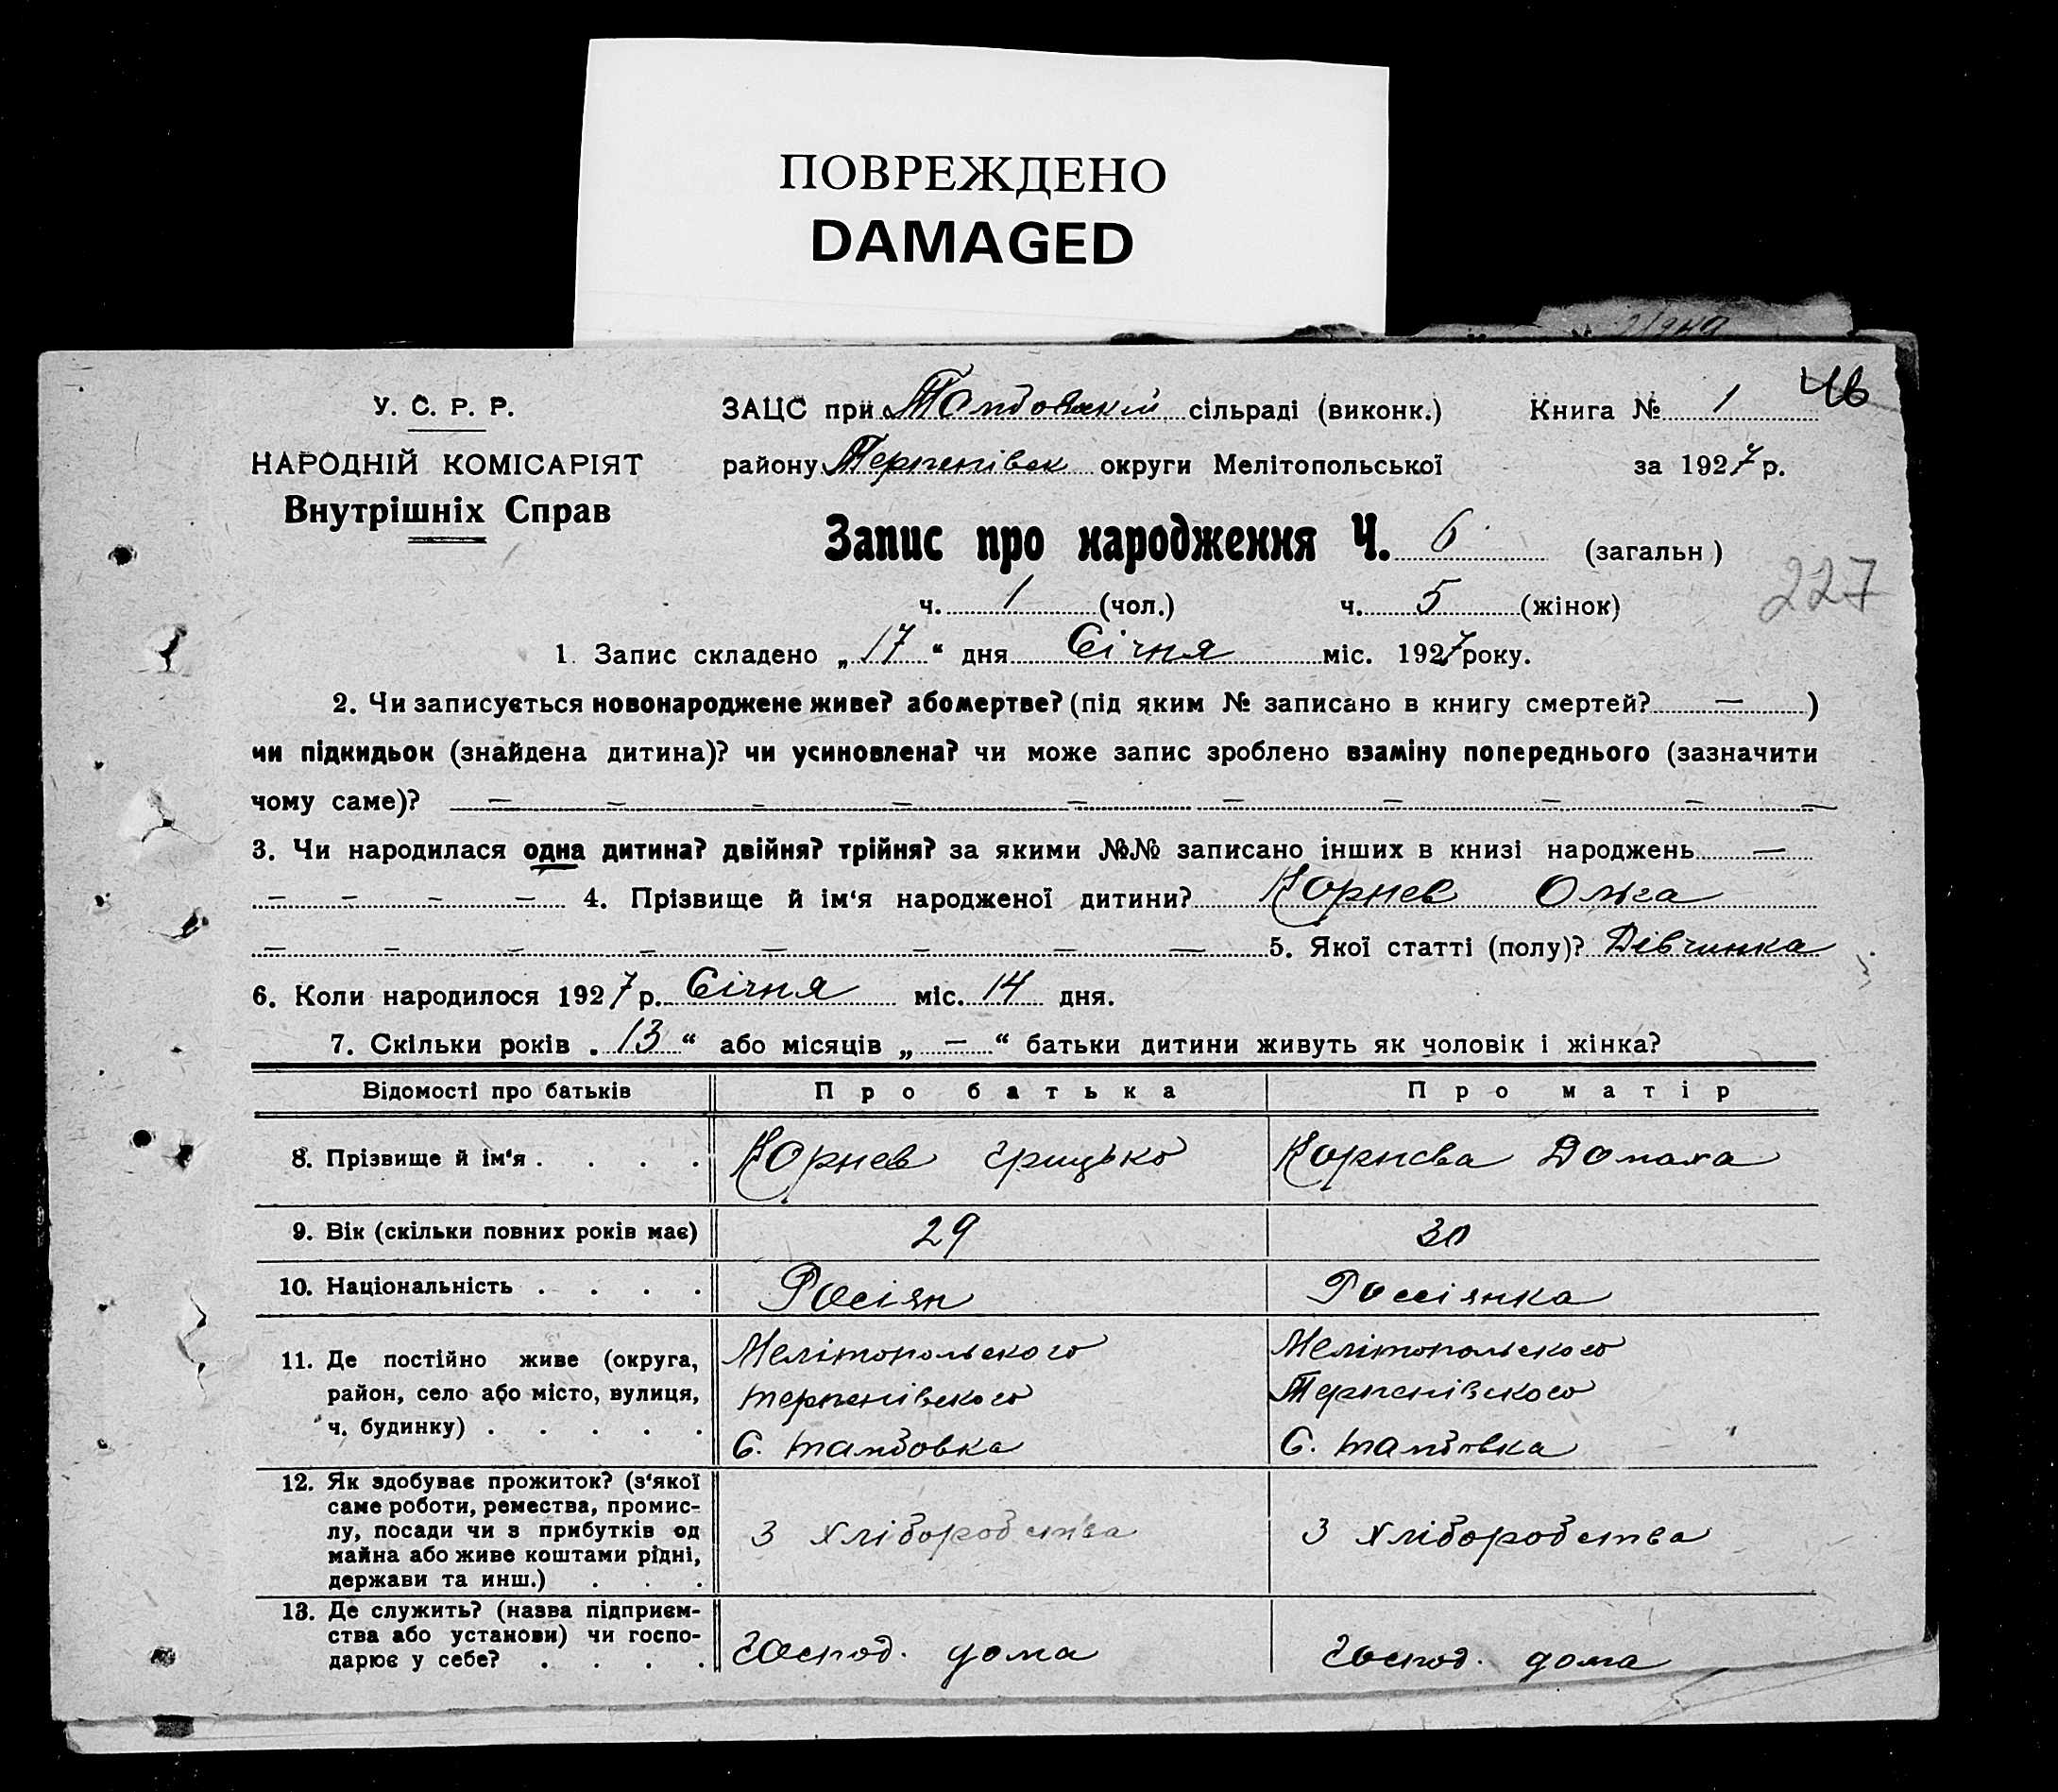 ПОВРЕЖДЕНО
DAMAGED
У. С. Р. Р.
НАРОДНІЙ КОМІСАРІЯТ
Внутрішніх Справ
ЗАЦС при Тамбовскій сільраді (виконк.) Книга № 1 46
району Терпенівск округи Мелітопольської за 1927 р.
Запис про народження Ч. 6 (загальн)
227
ч. 1 (чол.) ч. 5 (жінок)
1. Запис складено „17“ дня Січня міс. 1927 року.
2. Чи записується новонароджене живе? або мертве? (під яким № записано в книгу смертей? — )
чи підкидьок (знайдена дитина)? чи усиновлена? чи може запис зроблено взаміну попереднього (зазначити
чому саме)? — — — — — — — — — —
3. Чи народилася одна дитина? двійня? трійня? за якими №№ записано інших в книзі народжень —
— — — — 4. Прізвище й ім‘я народженої дитини? Корнев Ольга
— — — — — — — — 5. Якої статті (полу)? Дівчинка
6. Коли народилося 1927 р. Січня міс. 14 дня.
7. Скільки років „13“ або місяців „—“ батьки дитини живуть як чоловік і жінка?
Відомості про батьків Про батька Про матір
8. Прізвище й ім‘я . . . . Корнев Грицько Корнєва Домаха
9. Вік (скільки повних років має) 29 30
10. Національність . . . . Росіян Россіянка
11. Де постійно живе (округа, Мелітопольского Мелітопольского
район, село або місто, вулиця, терпенівского Терпенівского
ч. будинку) . . . . . С. тамбовка С. тамбовка
12. Як здобуває прожиток? (з‘якої
саме роботи, ремества, промис-
лу, посади чи з прибутків од З хліборобства З хліборобства
майна або живе коштами рідні,
держави та инш.) . . .
13. Де служить? (назва підприєм-
ства або установи) чи госпо- Господ. дома Господ. дома
дарює у себе? . . . .